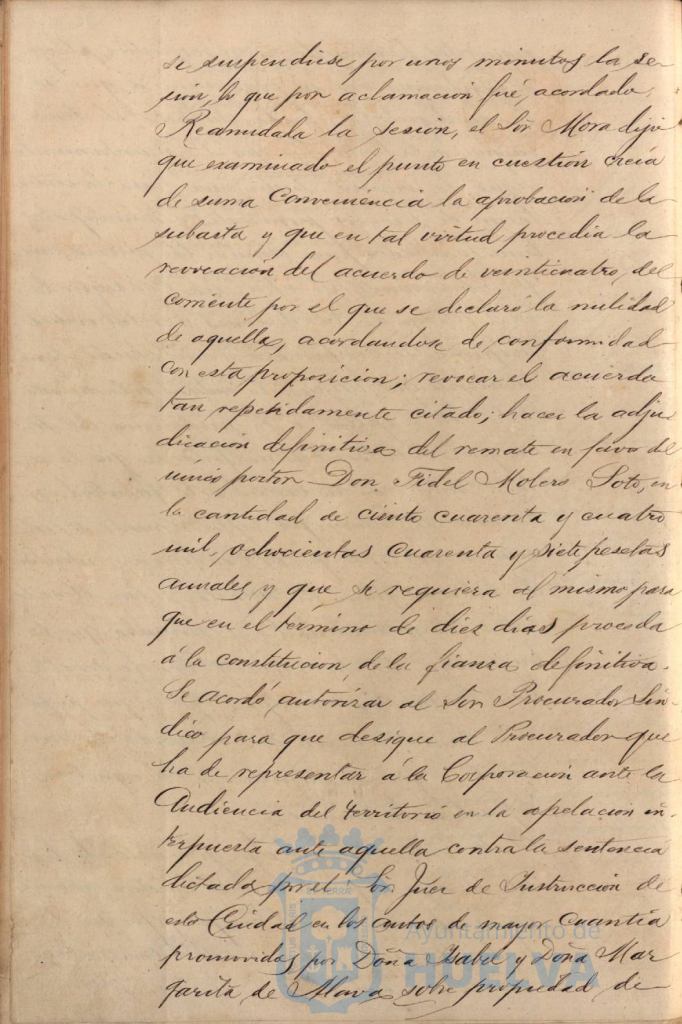 se suspendiese por unos minutos la se-
sion, lo que por aclamacion fué, acordado.
Reanudada la sesion, el Sor Mora dijo
que examinado el punto en cuestion creia
de suma conveniencia la aprobacion de la
subasta y que en tal virtud procedia la
revocacion del acuerdo de veinticuatro, del
corriente por el que se declaró la nulidad
de aquella, acordandose de conformidad
con esta proposicion; revocar el acuerdo
tan repetidamente citado; hacer la adju-
dicacion definitiva del remate en favor del
único postor Don Fidel Molero Soto, en
la cantidad de ciento cuarenta y cuatro
mil, ochocientas cuarenta y siete pesetas
anuales y que se requiera al mismo para
que en el término de diez dias proceda
á la constitucion de la fianza definitiva.
Se acordó autorizar al Sor Procurador Sin-
dico para que desigue al Procurador que
ha de representar á la Corporacion ante la
Audiencia del territorio en la apelacion in-
terpuesta ante aquella contra la sentencia
dictada por el Sor Juez de Instruccion de
esta Ciudad en los autos de mayor cuantía
promovidos por Doña Isabel y Doña Mar
garita de sobre propiedad de
Ayuntamiento de
HUELVA